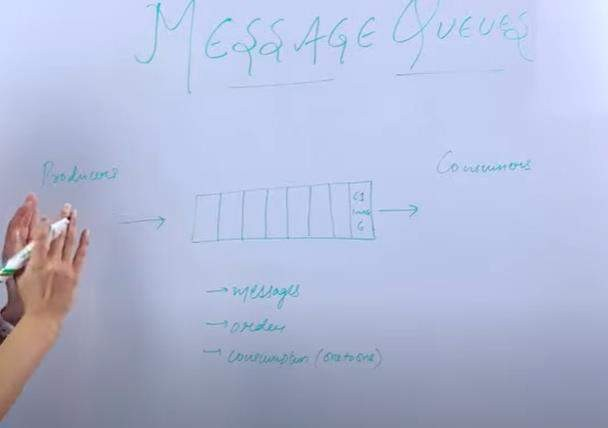 MESSAGE QUEUES
Producers
Consumers
→ messages
→ order
→ consumption (one to one)